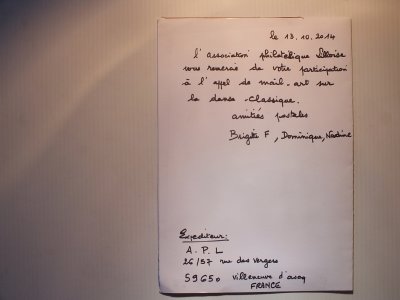 le 13.10.2014
l'association philatélique Lilloise
vous remercie de votre participation
à l'appel de mail-art sur
la danse-classique.
amitiés postales
Brigitte F, Dominique, Nadine
Expéditeur:
A.P.L
26/57 rue des vergers
59650 villeneuve d'ascq
FRANCE